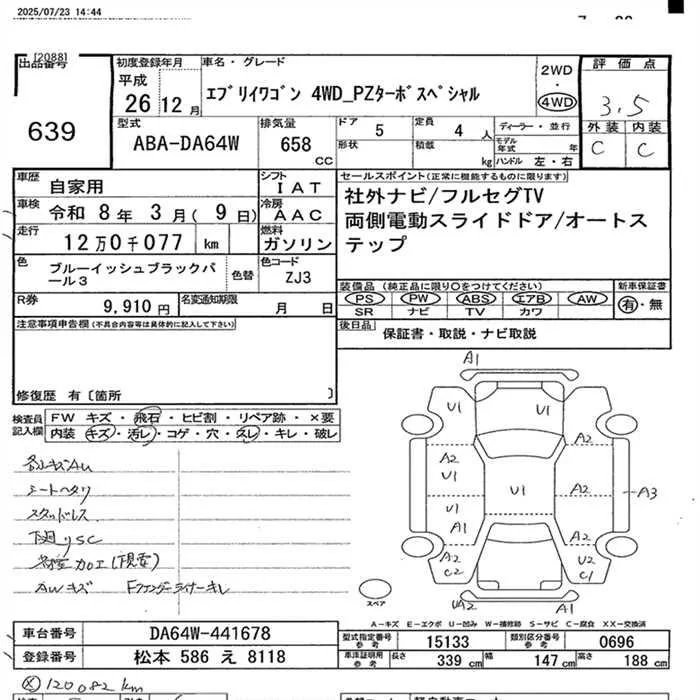 2025/07/23 14:44
[2088]
出品番号
639
初度登録年月
平成
26年12月
車名・グレード
エブリイワゴン 4WD_PZターボスペシャル
2WD
・
4WD
評価点
3.5
外装 内装
C C
型式
ABA-DA64W
排気量
658
CC
ドア 5
形状
定員 4 人
積載 kg
ディーラー・並行
モデル年式 年
ハンドル 左・右
車歴 自家用
シフト IAT
車検 令和 8年 3月(9日)
冷房 AAC
走行 12万0千077 km
燃料 ガソリン
色 ブルーイッシュブラックパール3
色替
色コード ZJ3
R券 9,910円
名変通知期限 月 日
セールスポイント(正常に機能するものに限ります)
社外ナビ/フルセグTV
両側電動スライドドア/オートス
テップ
装備品 (純正品に限り○をつけてください)
PS PW ABS エアB AW
SR ナビ TV カワ
新車保証書
有・無
後日品 保証書・取説・ナビ取説
注意事項申告欄(不具合内容等は具体的に記入して下さい)
修復歴 有〔箇所 〕
検査員記入欄
FW キズ・飛石・ヒビ割・リペア跡・×要
内装 キズ・汚レ・コゲ・穴・スレ・キレ・破レ
各ルキズAU
シートヘタリ
スタッドレス
下廻りSC
各種加工(下見要)
AWキズ Fフェンダーライナーキレ
A1
U1 U1
A2 A2
U1
U1 U1 A2 A3
A1
A2 A2
C2 U2
C1
スペア
UA2 A1
A-キズ E-エクボ U-凹み W-補修跡 S-サビ C-腐食 XX-交換済
車台番号 DA64W-441678
登録番号 松本 586 え 8118
型式指定番号 参考 15133
類別区分番号 参考 0696
車体証明用 参考 長さ 339 cm 幅 147 cm 高さ 188 cm
120082km